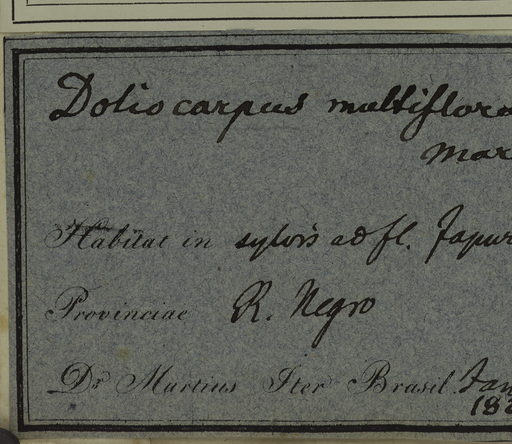 Doliocarpus multiflora
Mar
Habitat in sylvis ad fl. Japur
Provinciae R. Negro
Dr. Martius Iter Brasil. Jan
18